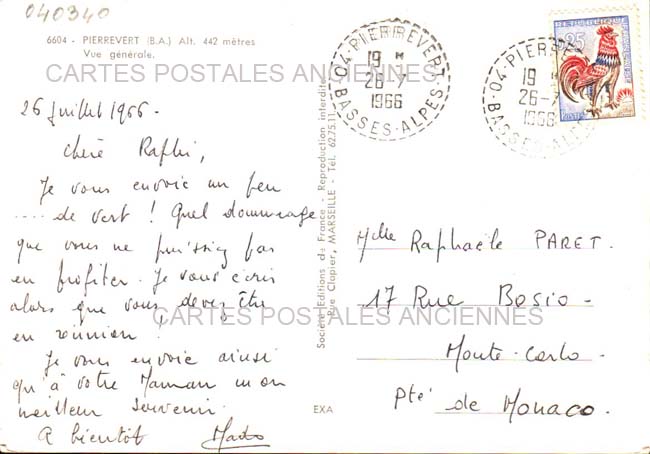 040340
6604 - PIERREVERT (B.A.) Alt. 442 mètres
Vue générale.
CARTES POSTALES ANCIENNES
04-PIERREVERT
19 H
26-7
1966
BASSES-ALPES
04-PIERRE
19 H
26-7
1966
BASSES-ALPES
25
26 Juillet 1966.
Chère Raphi,
Je vous envoie un peu
.... de vert ! Quel dommage
que vous ne puissiez pas
en profiter. Je vous écris
alors que vous devez être
en réunion.
Je vous envoie ainsi
qu'à votre Maman mon
meilleur souvenir.
A bientôt
Société Editions de France - Reproduction interdite
Rue Clapier, MARSEILLE - Tél. 62.75.11
EXA
Mlle Raphaële PARET.
17 Rue Bosio -
Monte-Carlo -
Pté de Monaco.
CARTES POSTALES ANCIENNES